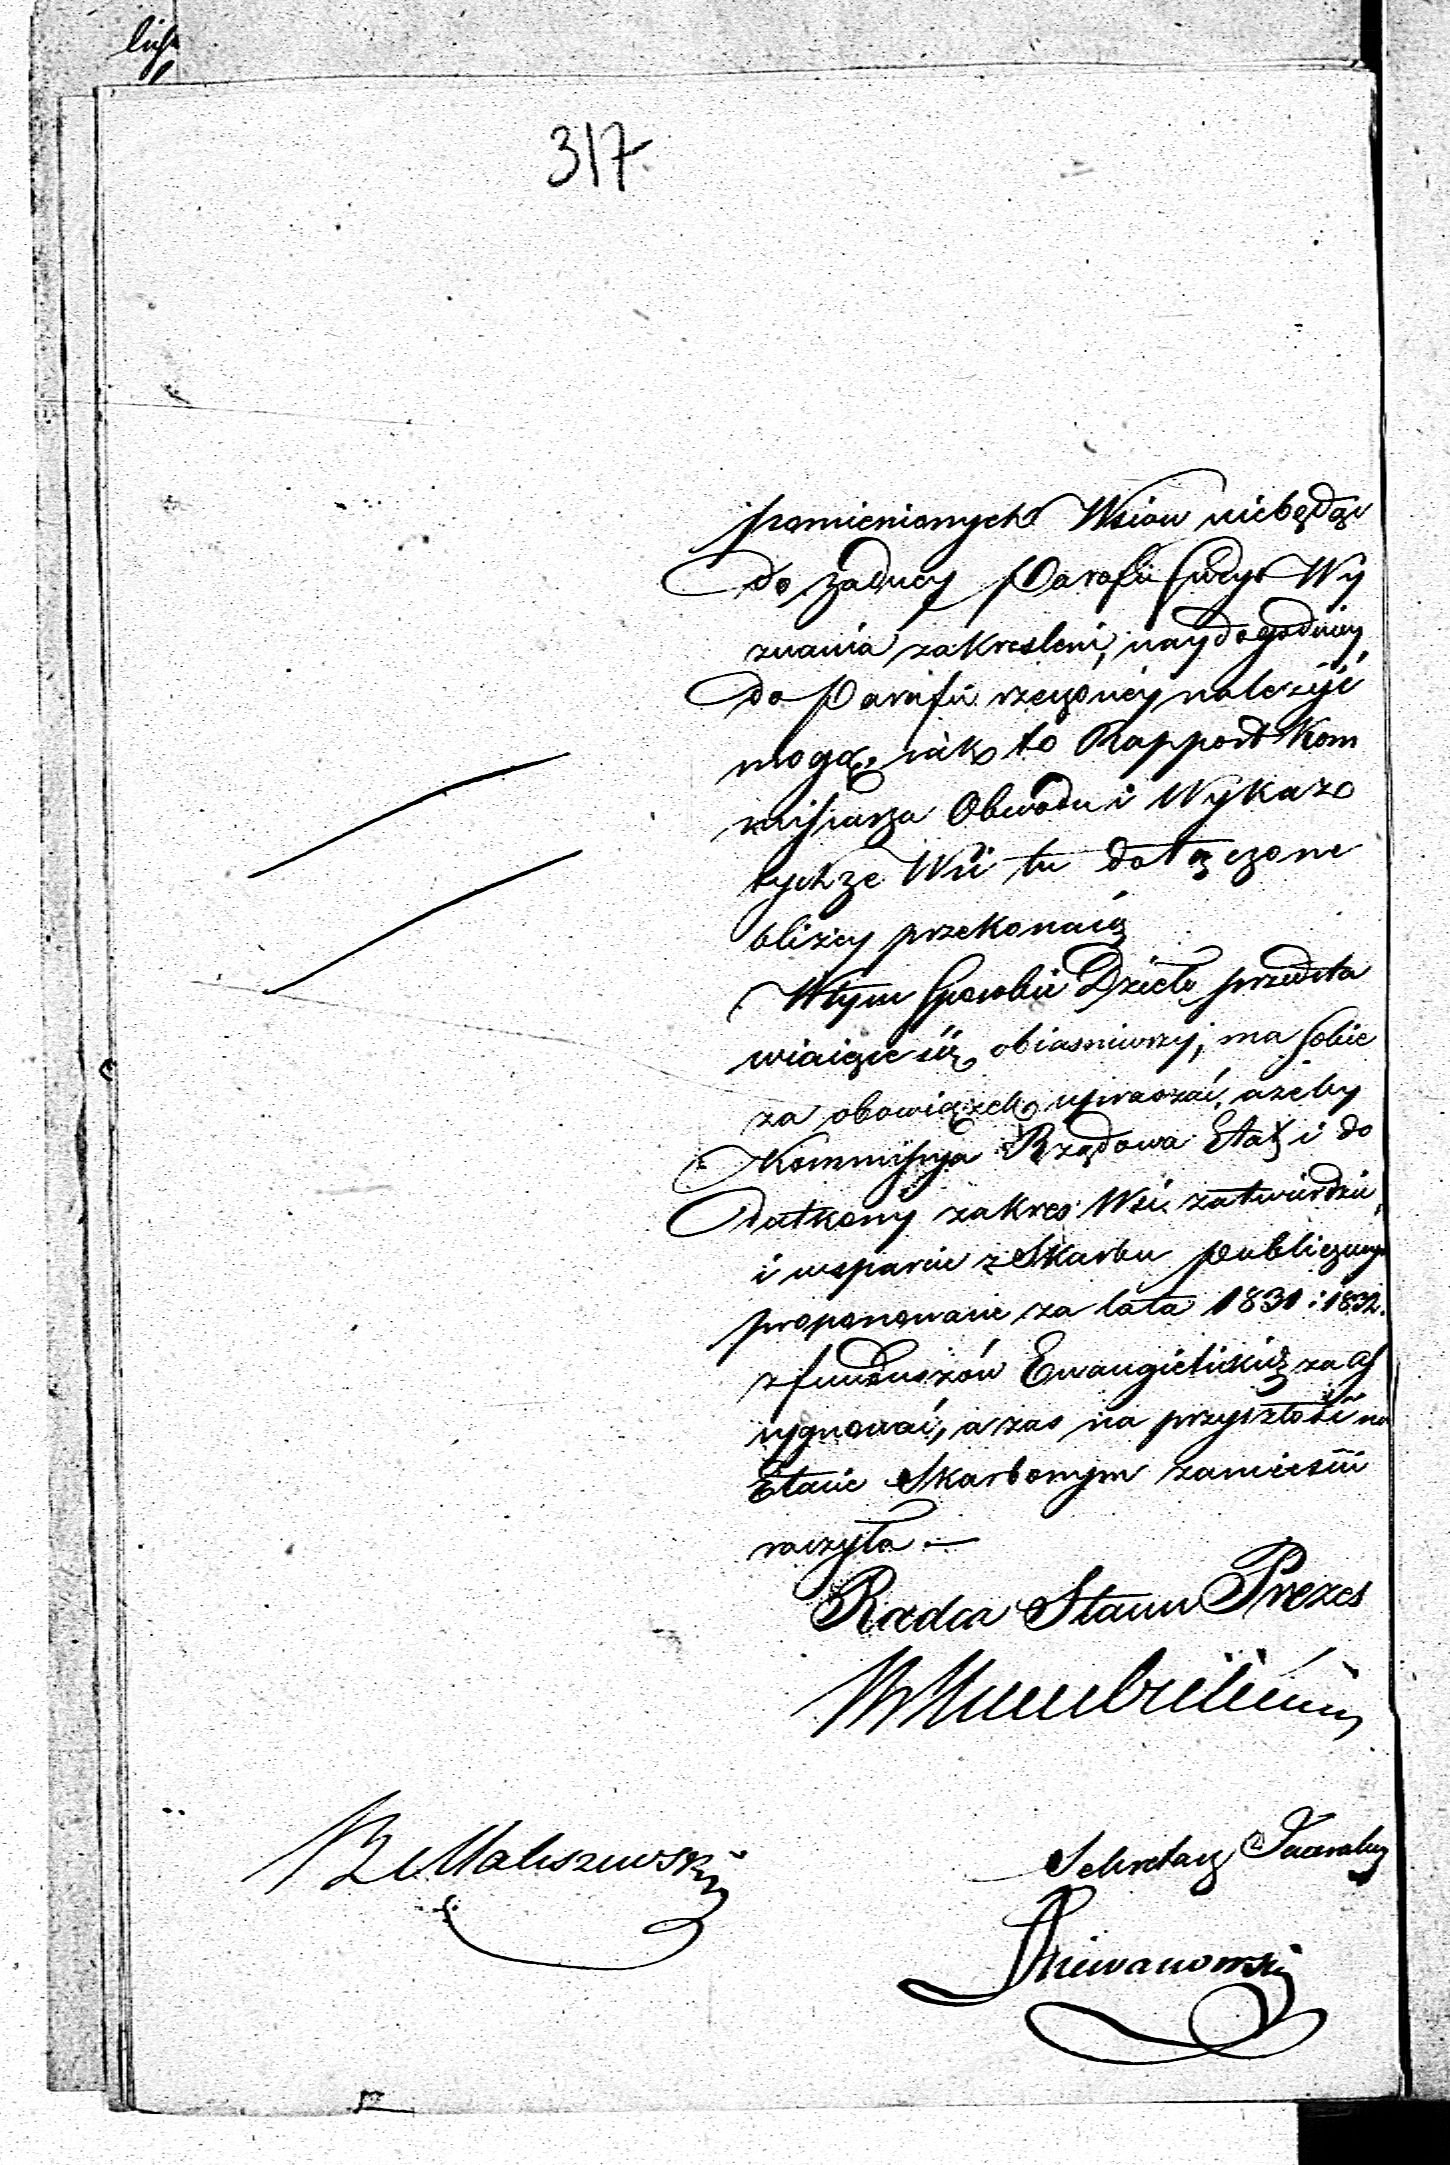 317.
pomienionych Wsiow niebędąc
do żadney Parafii swego Wy
znania zakresleni, naydogodniey
do Parafii rzeczoney należyć
mogą, iako to Rapport Kom
missarza Obwodu i Wykaz
tychże Wsi tu dołączone
bliżey przekonaią
W tym sposobie Dzieło przedsta
wiaiące się obiasniwszy, ma sobie
za obowiązek upraszać, ażeby
Kommissya Rządowa Etat i do
datkowy zakres Wsi zatwierdzić,
i wsparcie z Skarbu publicznego
proponowane za lata 1831 i 1832.
z funduszów Ewangielickich zaas
sygnować, a zas na przyszłość na
Etacie Skarbowym zamieścić
raczyła. —
Radca Stanu Prezes
Maliszewski
Sekretarz Jeneralny